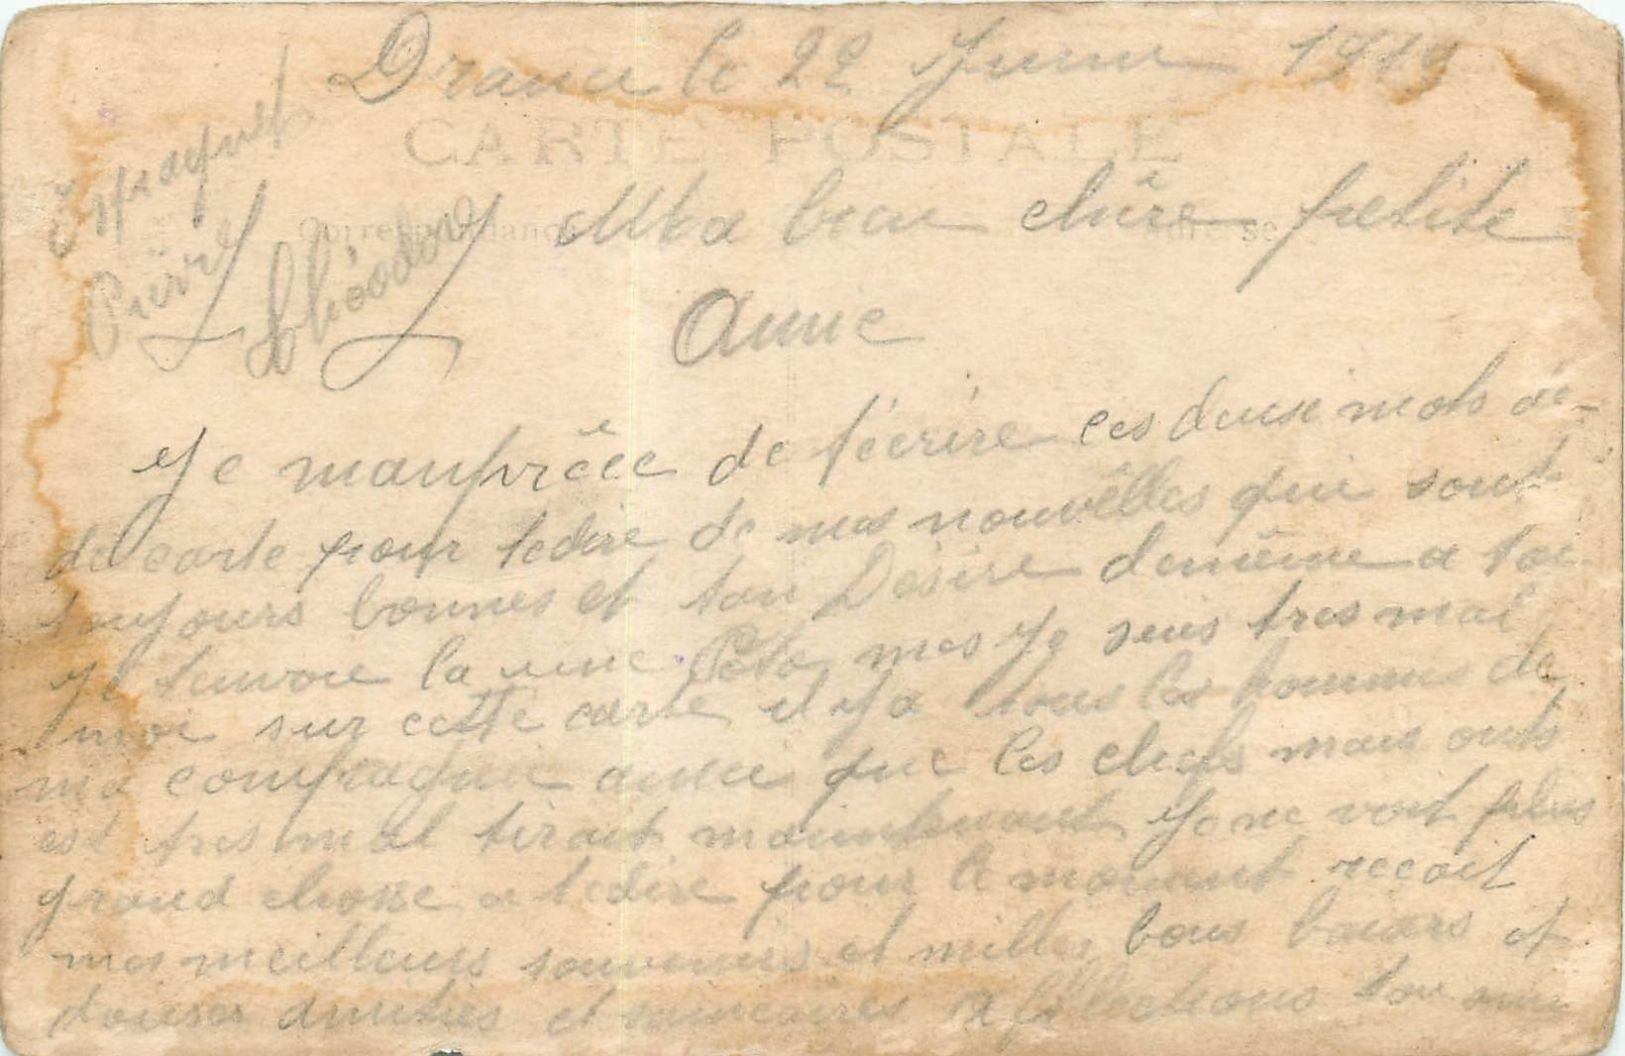 le 22 Juin 1919
CARTE POSTALE
Correspondance
Adresse
Pierre
Théodore
Ma bien chère petite
Amie
Je manprêce de t'écrire ces deuse mots
de carte pour tedire de mes nouvêlles qui sont
toujours bonnes et ton Désire demême a toi
Je tenvoie la une Foto mes Je suis tres mal
moi sur cette carte il y a tous les hommes de
ma compagnie ausie que les chefs mais
est tres mal tirait maintenant Je ne voit plus
grand chosse a tedire pour le momant recoit
mes meilleurs souvenirs et milles bons baiars et
douses amities et sincaires affections ton ami